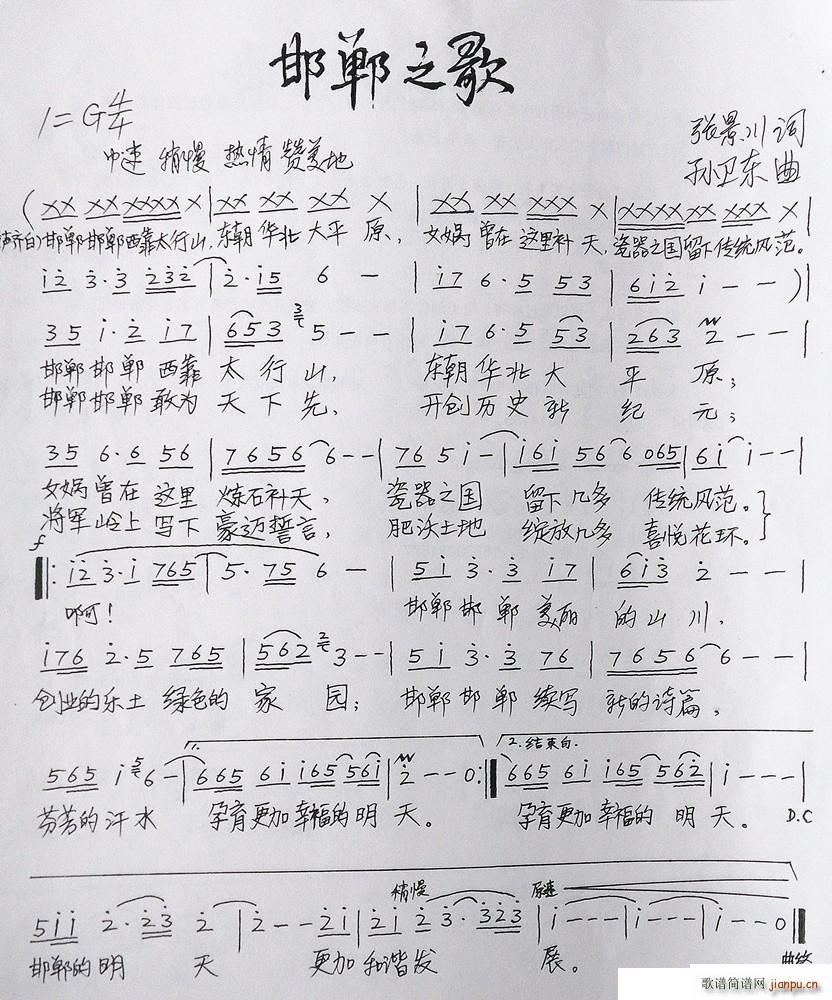 邯郸之歌
1=G 4/4
张景川 词
中速 稍慢 热情 赞美地
孙卫东 曲
(XX XX XXXX X | XX XX XX X | XX XX XXX X | XXXXXX XXX X |
声齐白)邯郸邯郸西靠太行山,东朝华北大平原,女娲曾在这里补天,瓷器之国留下传统风范。
i2 3·3 232 | 2·i5 6 - | i7 6·5 5 53 | 6i2 i - - )|
35 i·2 i7 | 653 5 - - | i76·5 53 | 263 2 - - |
邯郸邯郸西靠太行山, 东朝华北大平原;
邯郸邯郸敢为天下先, 开创历史新纪元;
35 6·6 56 | 7656 6 - - | 76 5 i - | i6i 56 6 065 | 6i i - - |
女娲曾在这里炼石补天, 瓷器之国 留下几多 传统风范。
将军岭上写下豪迈誓言, 肥沃土地 绽放几多 喜悦花环。
f
|: i2 3·i 765 | 5·75 6 - | 5i 3·3 i7 | 6i3 2 - - |
啊! 邯郸邯郸美丽的山川,
i76 2·5 765 | 562 2 3 - - | 5i 3·3 76 | 7656 6 - - |
创业的乐土绿色的家园; 邯郸邯郸续写新的诗篇,
1. 2.结束句.
565 i 5 6 - | 665 6i i65 56i | 2 - - 0 :| 665 6i i65 562 | i - - - |
芬芳的汗水 孕育更加幸福的明天。 孕育更加幸福的明天。 D.C
稍慢 原速
5ii 2·23 2 | 2 - - 2i | 2i 2 3·323 | i - - - | i - - - | i - - 0 ‖
邯郸的明天 更加和谐发展。
曲终
歌谱简谱网 jianpu.cn